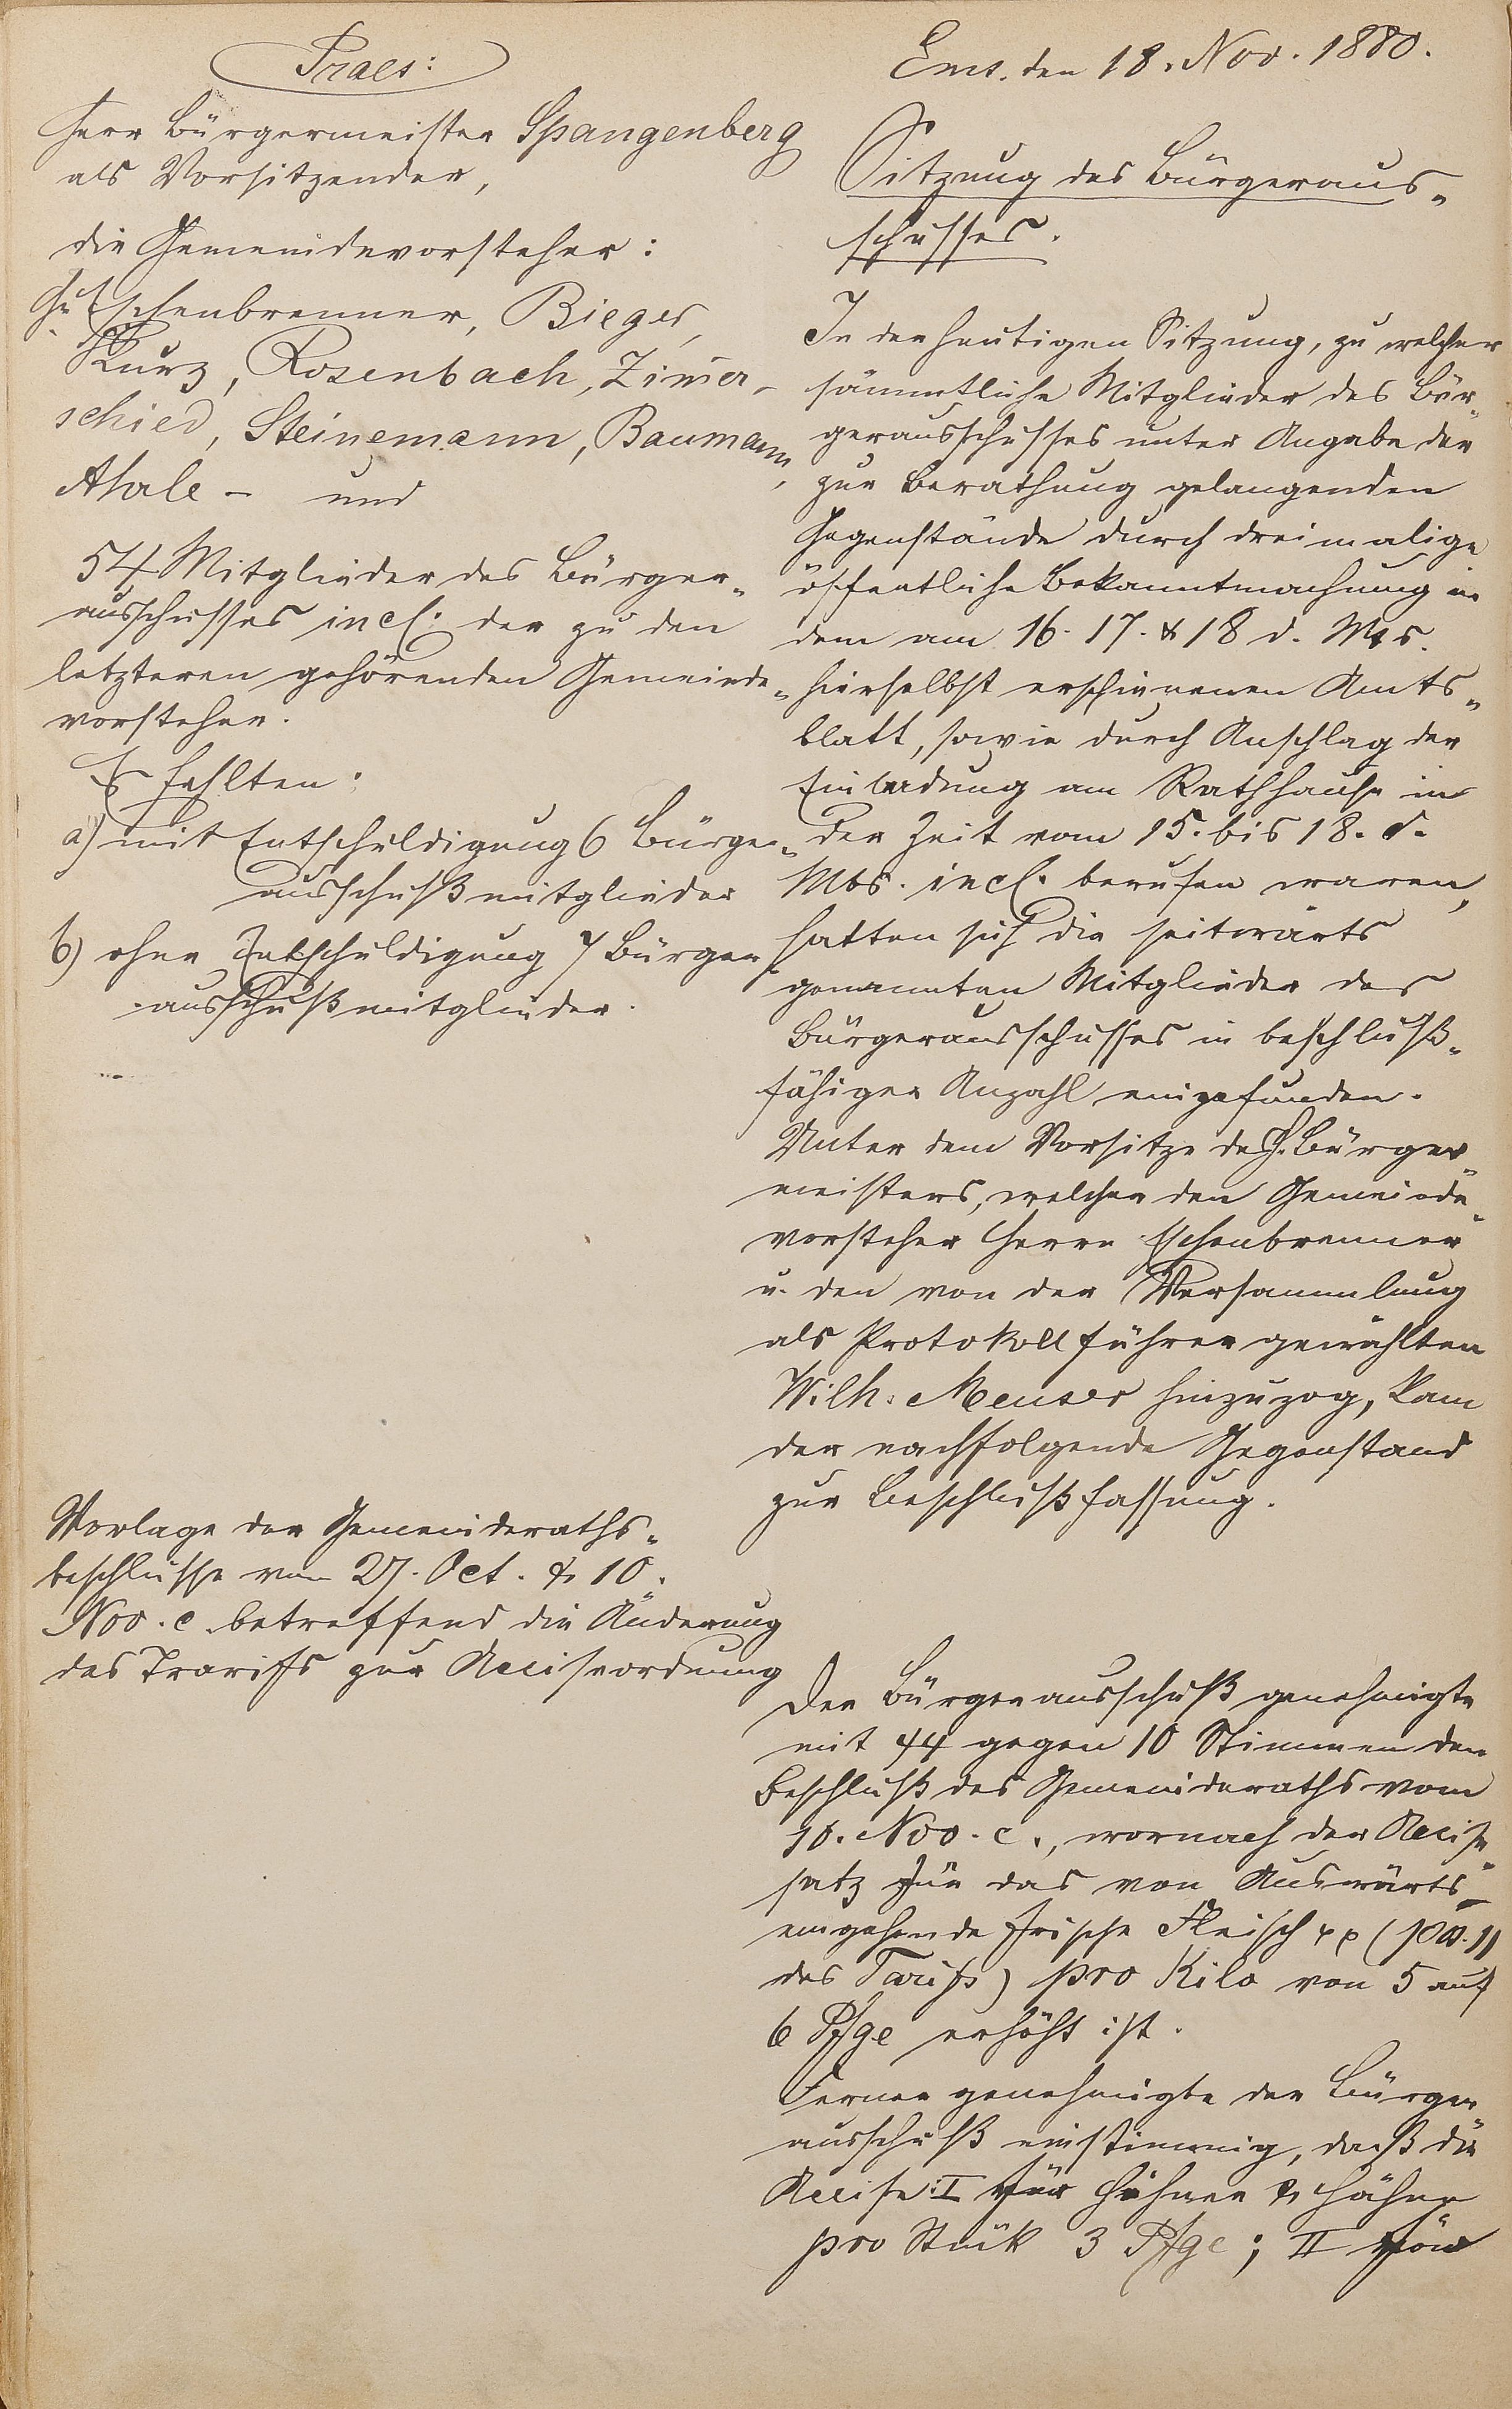 Praes:
Herr Bürgermeister Spangenberg
als Vorsitzender,
die Gemeindevorsteher:
H. Eschenbrenner, Bieger,
Kurz, Rosenbach, Zimer-
schied, Steinemann, Baumann,
Ahale – und
54 Mitglieder des Bürger-
ausschusses incl. der zu den
letzteren gehörenden Gemeinde-
vorsteher.
Es fehlten:
a) mit Entschuldigung 6 Bürger-
ausschußmitglieder
b) ohne Entschuldigung 7 Bürger
ausschußmitglieder.
Vorlage der Gemeinderaths-
beschlüsse vom 27. Oct. & 10.
Nov. c. betreffend die Änderung
des Trarifs zur Acciseordnung
Ems. den 18. Nov. 1880.
Sitzung des Bürgeraus-
schusses.
In der heutigen Sitzung, zu welcher
sämmtliche Mitglieder des Bür-
gerausschusses unter Angabe der
zur Berathung gelangenden
Gegenstände durch dreimalige
öffentliche Bekanntmachung in
dem am 16. 17. & 18 d. Mts.
hierselbst erschienenen Amts-
blatt, sowie durch Anschlag der
Einladung am Rathhause in
der Zeit vom 15. bis 18. d.
Mts. incl. berufen waren,
hatten sich die seitwärts
genannten Mitglieder des
Bürgerausschusses in beschluß-
fähiger Anzahl eingefunden.
Unter dem Vorsitze des H. Bürger-
meisters, welcher den Gemeinde-
vorsteher Herrn Eschenbrenner
u. den von der Versammlung
als Protokollführer gewählten
Wilh. Meuser hinzuzog, kam
der nachfolgende Gegenstand
zur Beschlußfassung.
Der Bürgerausschuß genehmigte
mit 44 gegen 10 Stimmen den
Beschluß des Gemeinderaths vom
10. Nov. c., wornach der Accise-
satz für das von Auswärts
eingehende frische Fleisch pp (pos. 11
des Tarifs) pro Kilo von 5 auf
6 Pfge erhöht ist.
Ferner genehmigte der Bürger-
ausschuß einstimmig, daß die
Accise: I für Hühner & Hähne
pro Stück 3 Pfge; II für